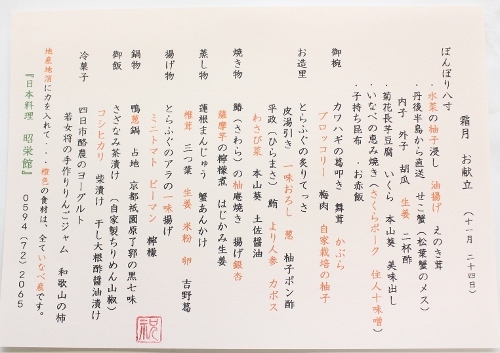 霜月　お献立　（十一月　二十四日）
ぼんぼり八寸
・水菜の柚子浸し　油揚げ　えのき茸
・丹後半島から直送　せこ蟹（松葉蟹のメス）
内子　外子　胡瓜　生姜　二杯酢
・菊花長芋豆腐　いくら　本山葵　美味出し
・いなべの恵み焼き（さくらポーク　佳人十味噌）
・子持ち昆布　・お赤飯
御椀　カワハギの葛叩き　舞茸　かぶら
ブロッコリー　梅肉　自家栽培の柚子
お造里　とらふぐの炙りてっさ
皮湯引き　一味おろし　葱　柚子ポン酢
平政（ひらまさ）　鮪　より人参　カボス
わさび菜　本山葵　土佐醤油
焼き物　鰆（さわら）の柚庵焼き　揚げ銀杏
薩摩芋の檸檬煮　はじかみ生姜
蒸し物　蓮根まんじゅう　蟹あんかけ
椎茸　三つ葉　生姜　米粉　卵　吉野葛
揚げ物　とらふぐのアラの一味揚げ
ミニトマト　ピーマン　檸檬
鍋物　鴨葱鍋　占地　京都祗園原了郭の黒七味
御飯　さざなみ茶漬け　（自家製ちりめん山椒）
コシヒカリ　柴漬け　干し大根酢醤油漬け
冷菓子　四日市酪農のヨーグルト
若女将の手作りりんごジャム　和歌山の柿
地産地消に力を入れて・・・橙色の食材は、全ていなべ産です。
『日本料理　昭栄館』　0594（72）2065